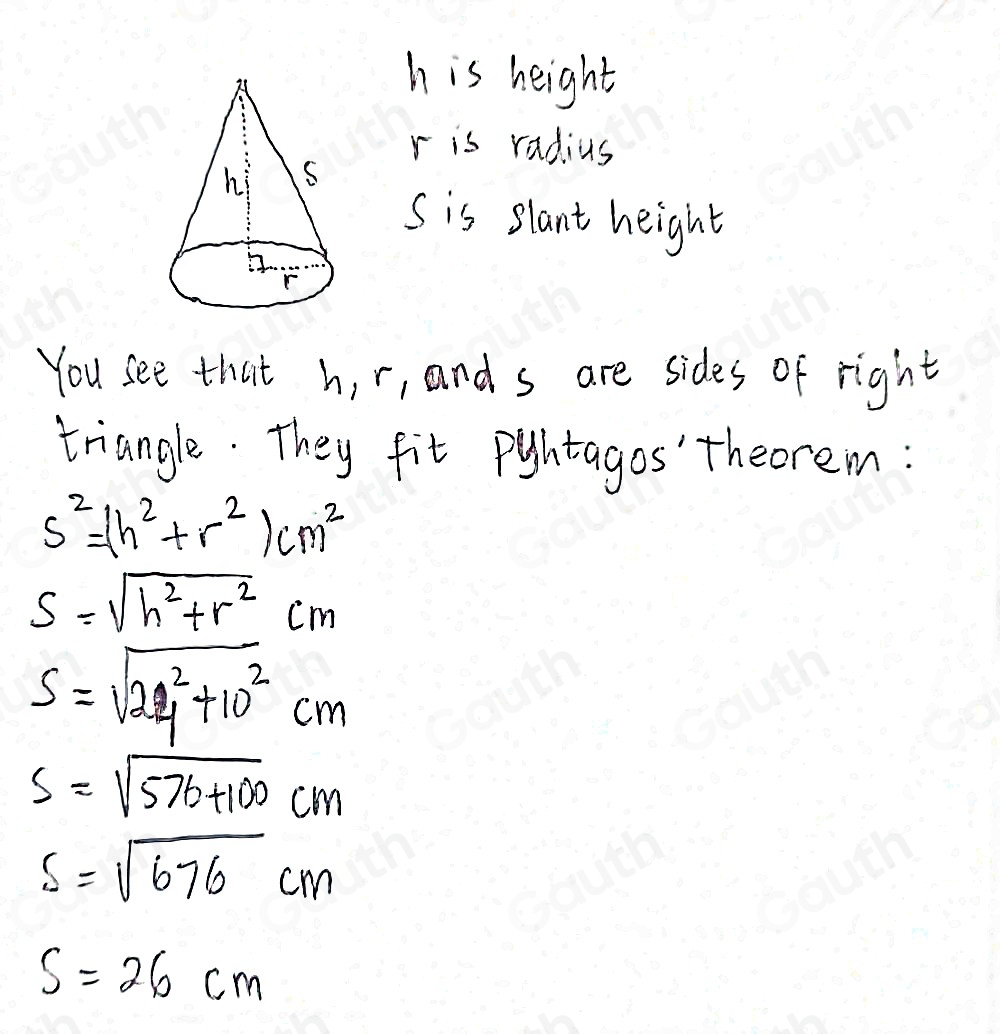 h is height
r is radius
S is slant height
h
s
r
You see that h, r, and s are sides of right
triangle. They fit Pyhtagos' Theorem:
s²=(h²+r²)cm²
S=√h²+r² cm
S=√24²+10² cm
S=√576+100 cm
S=√676 cm
S=26 cm
Gauth